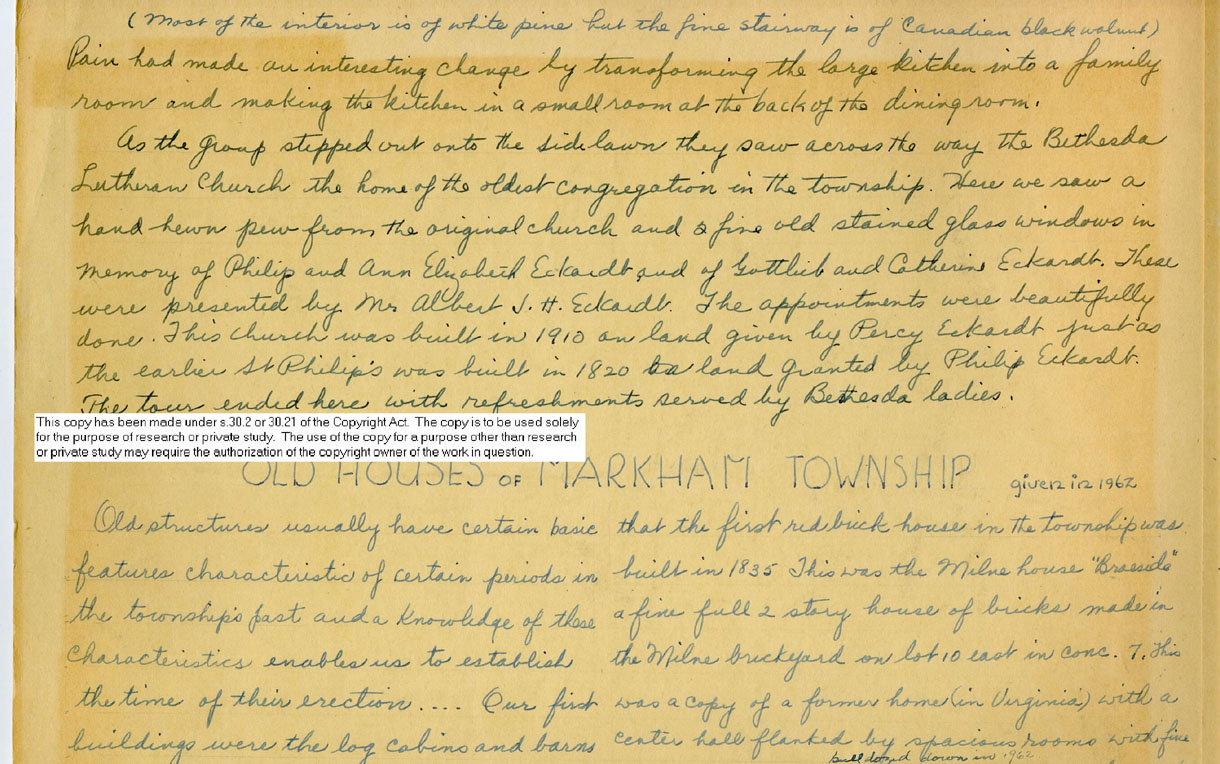 (Most of the interior is of white pine but the fine stairway is of Canadian black walnut)
Pain had made an interesting change by transforming the large kitchen into a family
room and making the kitchen in a small room at the back of the dining room.
As the group stepped out onto the side lawn they saw across the way the Bethesda
Lutheran Church the home of the oldest congregation in the township. Here we saw a
hand hewn pew from the original church and 2 fine old stained glass windows in
memory of Philip and Ann Elizabeth Eckardt and of Gottlieb and Catherine Eckardt. These
were presented by Mr Albert J. H. Eckardt. The appointments were beautifully
done. This church was built in 1910 on land given by Percy Eckardt just as
the earlier St Philip's was built in 1820 land granted by Philip Eckardt.
The tour ended here with refreshments served by Bethesda ladies.
This copy has been made under s.30.2 or 30.21 of the Copyright Act. The copy is to be used solely
for the purpose of research or private study. The use of the copy for a purpose other than research
or private study may require the authorization of the copyright owner of the work in question.
OLD HOUSES OF MARKHAM TOWNSHIP given in 1962
Old structures usually have certain basic
features characteristic of certain periods in
the township's past and a knowledge of these
characteristics enables us to establish
the time of their erection.... Our first
buildings were the log cabins and barns
that the first red brick house in the township was
built in 1835 This was the Milne house "Braeside"
a fine full 2 story house of bricks made in
the Milne brickyard on lot 10 east in conc. 7. This
was a copy of a former home (in Virginia) with a
center hall flanked by spacious rooms with fine
bulldozed down in 1962